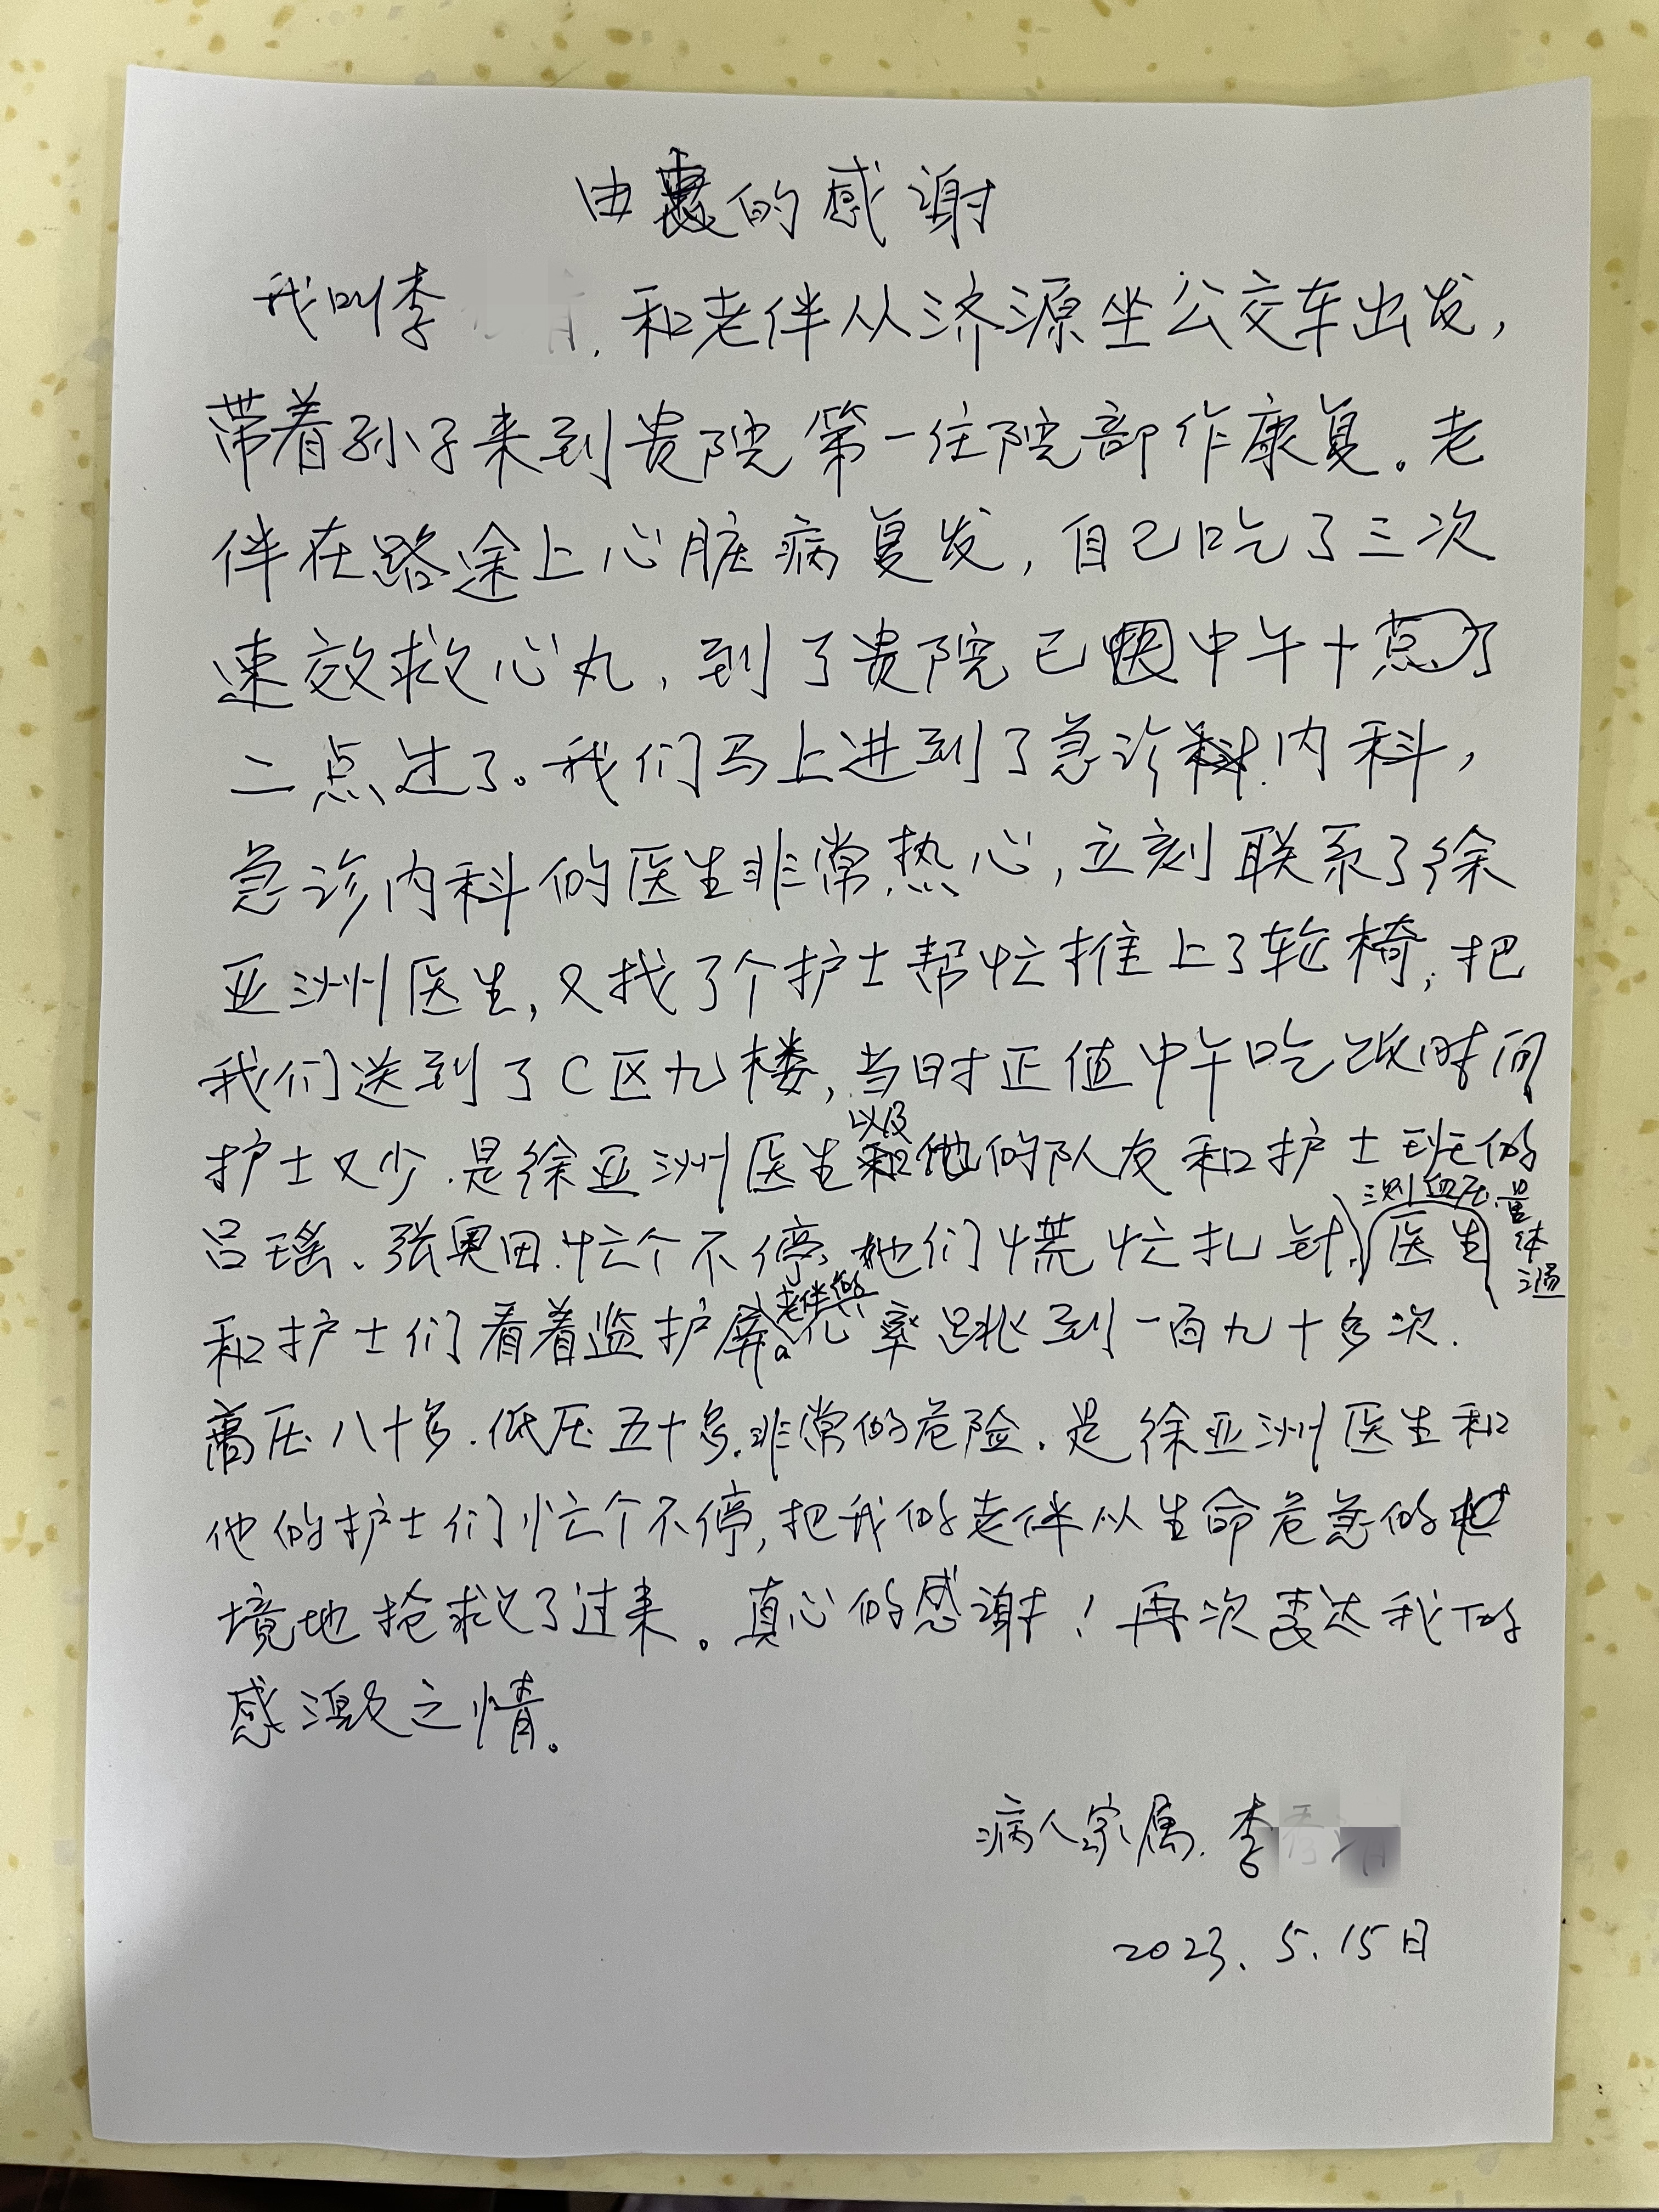 由衷的感谢
我叫李 和老伴从济源坐公交车出发，
带着孙子来到贵院第一住院部作康复。老
伴在路途上心脏病复发，自己吃了三次
速效救心丸，到了贵院已 中午十
二点过了。我们马上进到了急诊内科，
急诊内科的医生非常热心，立刻联系了徐
亚洲医生，又找了个护士帮忙推上了轮椅，把
我们送到了C区九楼，当时正值中午吃饭时间
以及
护士又少.是徐亚洲医生他的队友和护士班的
测血压.量体温
吕瑶、张奥田.忙个不停.她们慌忙扎针，医生
老伴的
和护士们看着监护屏心率跳到一百九十多次.
高压八十多.低压五十多.非常的危险.是徐亚洲医生和
他的护士们忙个不停，把我的老伴从生命危急的
境地抢救了过来。真心的感谢！再次表达我的
感激之情。
病人家属.李
2023.5.15日